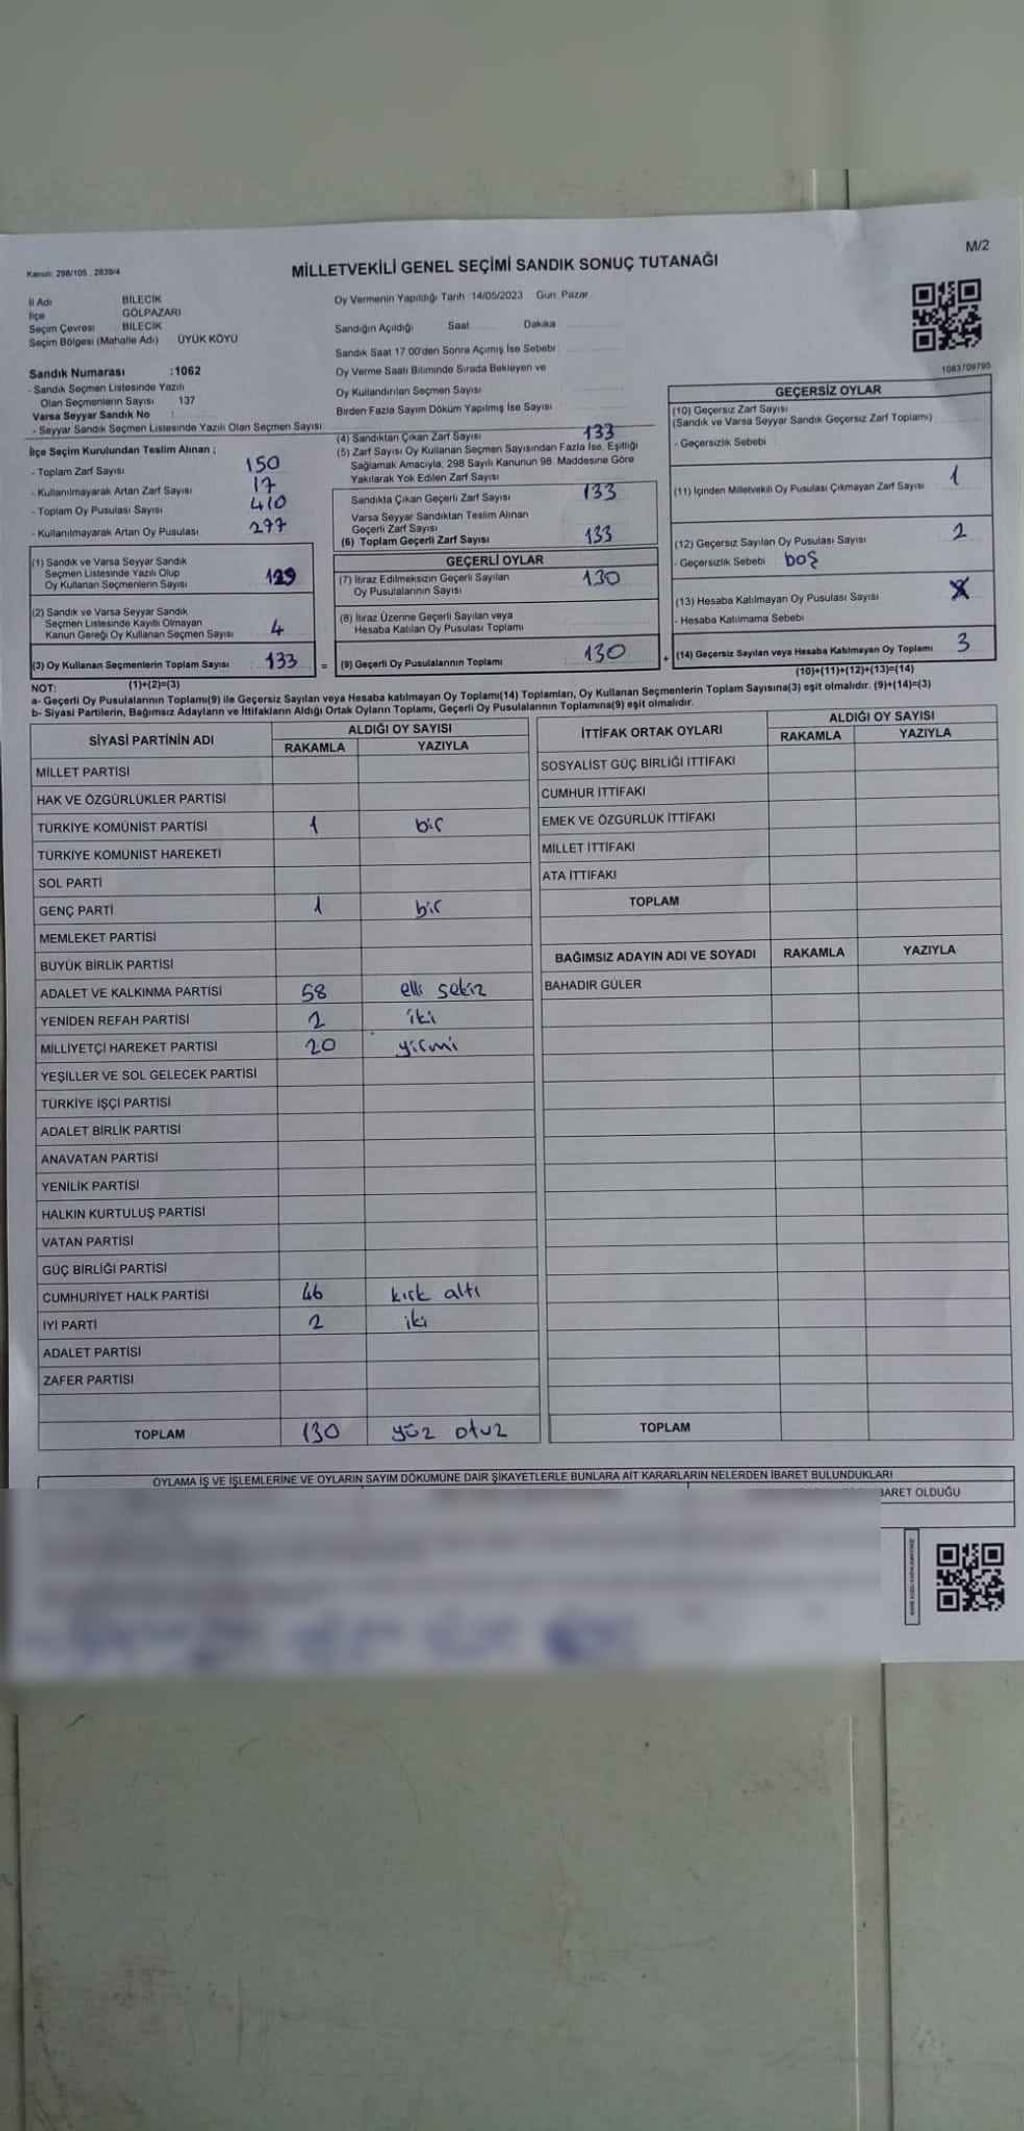 M/2
Kanun: 298/105 , 2839/4
MİLLETVEKİLİ GENEL SEÇİMİ SANDIK SONUÇ TUTANAĞI
İl Adı BİLECİK
İlçe GÖLPAZARI
Seçim Çevresi BİLECİK
Seçim Bölgesi (Mahalle Adı) ÜYÜK KÖYÜ
Sandık Numarası :1062
- Sandık Seçmen Listesinde Yazılı
Olan Seçmenlerin Sayısı 137
Varsa Seyyar Sandık No :
- Seyyar Sandık Seçmen Listesinde Yazılı Olan Seçmen Sayısı
İlçe Seçim Kurulundan Teslim Alınan ;
- Toplam Zarf Sayısı 150
- Kullanılmayarak Artan Zarf Sayısı 17
- Toplam Oy Pusulası Sayısı 410
- Kullanılmayarak Artan Oy Pusulası 277
(1) Sandık ve Varsa Seyyar Sandık
Seçmen Listesinde Yazılı Olup
Oy Kullanan Seçmenlerin Sayısı 129
(2) Sandık ve Varsa Seyyar Sandık
Seçmen Listesinde Kayıtlı Olmayan
Kanun Gereği Oy Kullanan Seçmen Sayısı 4
(3) Oy Kullanan Seçmenlerin Toplam Sayısı 133 =
Oy Vermenin Yapıldığı Tarih :14/05/2023 Gün: Pazar
Sandığın Açıldığı Saat Dakika
Sandık Saat 17.00'den Sonra Açılmış İse Sebebi
Oy Verme Saati Bitiminde Sırada Bekleyen ve
Oy Kullandırılan Seçmen Sayısı
Birden Fazla Sayım Döküm Yapılmış İse Sayısı
(4) Sandıktan Çıkan Zarf Sayısı 133
(5) Zarf Sayısı Oy Kullanan Seçmen Sayısından Fazla İse, Eşitliği
Sağlamak Amacıyla, 298 Sayılı Kanunun 98. Maddesine Göre
Yakılarak Yok Edilen Zarf Sayısı
Sandıkta Çıkan Geçerli Zarf Sayısı 133
Varsa Seyyar Sandıktan Teslim Alınan
Geçerli Zarf Sayısı
(6) Toplam Geçerli Zarf Sayısı 133
GEÇERLİ OYLAR
(7) İtiraz Edilmeksizin Geçerli Sayılan
Oy Pusulalarının Sayısı 130
(8) İtiraz Üzerine Geçerli Sayılan veya
Hesaba Katılan Oy Pusulası Toplamı
(9) Geçerli Oy Pusulalarının Toplamı 130 +
1083709795
GEÇERSİZ OYLAR
(10) Geçersiz Zarf Sayısı
(Sandık ve Varsa Seyyar Sandık Geçersiz Zarf Toplamı)
- Geçersizlik Sebebi
(11) İçinden Milletvekili Oy Pusulası Çıkmayan Zarf Sayısı 1
(12) Geçersiz Sayılan Oy Pusulası Sayısı 2
- Geçersizlik Sebebi boş
(13) Hesaba Katılmayan Oy Pusulası Sayısı
- Hesaba Katılmama Sebebi
(14) Geçersiz Sayılan veya Hesaba Katılmayan Oy Toplamı 3
(10)+(11)+(12)+(13)=(14)
NOT: (1)+(2)=(3)
a- Geçerli Oy Pusulalarının Toplamı(9) ile Geçersiz Sayılan veya Hesaba katılmayan Oy Toplamı(14) Toplamları, Oy Kullanan Seçmenlerin Toplam Sayısına(3) eşit olmalıdır. (9)+(14)=(3)
b- Siyasi Partilerin, Bağımsız Adayların ve İttifakların Aldığı Ortak Oyların Toplamı, Geçerli Oy Pusulalarının Toplamına(9) eşit olmalıdır.
SİYASİ PARTİNİN ADI ALDIĞI OY SAYISI
RAKAMLA YAZIYLA
MİLLET PARTİSİ
HAK VE ÖZGÜRLÜKLER PARTİSİ
TÜRKİYE KOMÜNİST PARTİSİ 1 bir
TÜRKİYE KOMÜNİST HAREKETİ
SOL PARTİ
GENÇ PARTİ 1 bir
MEMLEKET PARTİSİ
BÜYÜK BİRLİK PARTİSİ
ADALET VE KALKINMA PARTİSİ 58 elli sekiz
YENİDEN REFAH PARTİSİ 2 iki
MİLLİYETÇİ HAREKET PARTİSİ 20 yirmi
YEŞİLLER VE SOL GELECEK PARTİSİ
TÜRKİYE İŞÇİ PARTİSİ
ADALET BİRLİK PARTİSİ
ANAVATAN PARTİSİ
YENİLİK PARTİSİ
HALKIN KURTULUŞ PARTİSİ
VATAN PARTİSİ
GÜÇ BİRLİĞİ PARTİSİ
CUMHURİYET HALK PARTİSİ 46 kırk altı
İYİ PARTİ 2 iki
ADALET PARTİSİ
ZAFER PARTİSİ
TOPLAM 130 yüz otuz
İTTİFAK ORTAK OYLARI ALDIĞI OY SAYISI
RAKAMLA YAZIYLA
SOSYALİST GÜÇ BİRLİĞİ İTTİFAKI
CUMHUR İTTİFAKI
EMEK VE ÖZGÜRLÜK İTTİFAKI
MİLLET İTTİFAKI
ATA İTTİFAKI
TOPLAM
BAĞIMSIZ ADAYIN ADI VE SOYADI RAKAMLA YAZIYLA
BAHADIR GÜLER
TOPLAM
OYLAMA İŞ VE İŞLEMLERİNE VE OYLARIN SAYIM DÖKÜMÜNE DAİR ŞİKAYETLERLE BUNLARA AİT KARARLARIN NELERDEN İBARET BULUNDUKLARI
BARET OLDUĞU